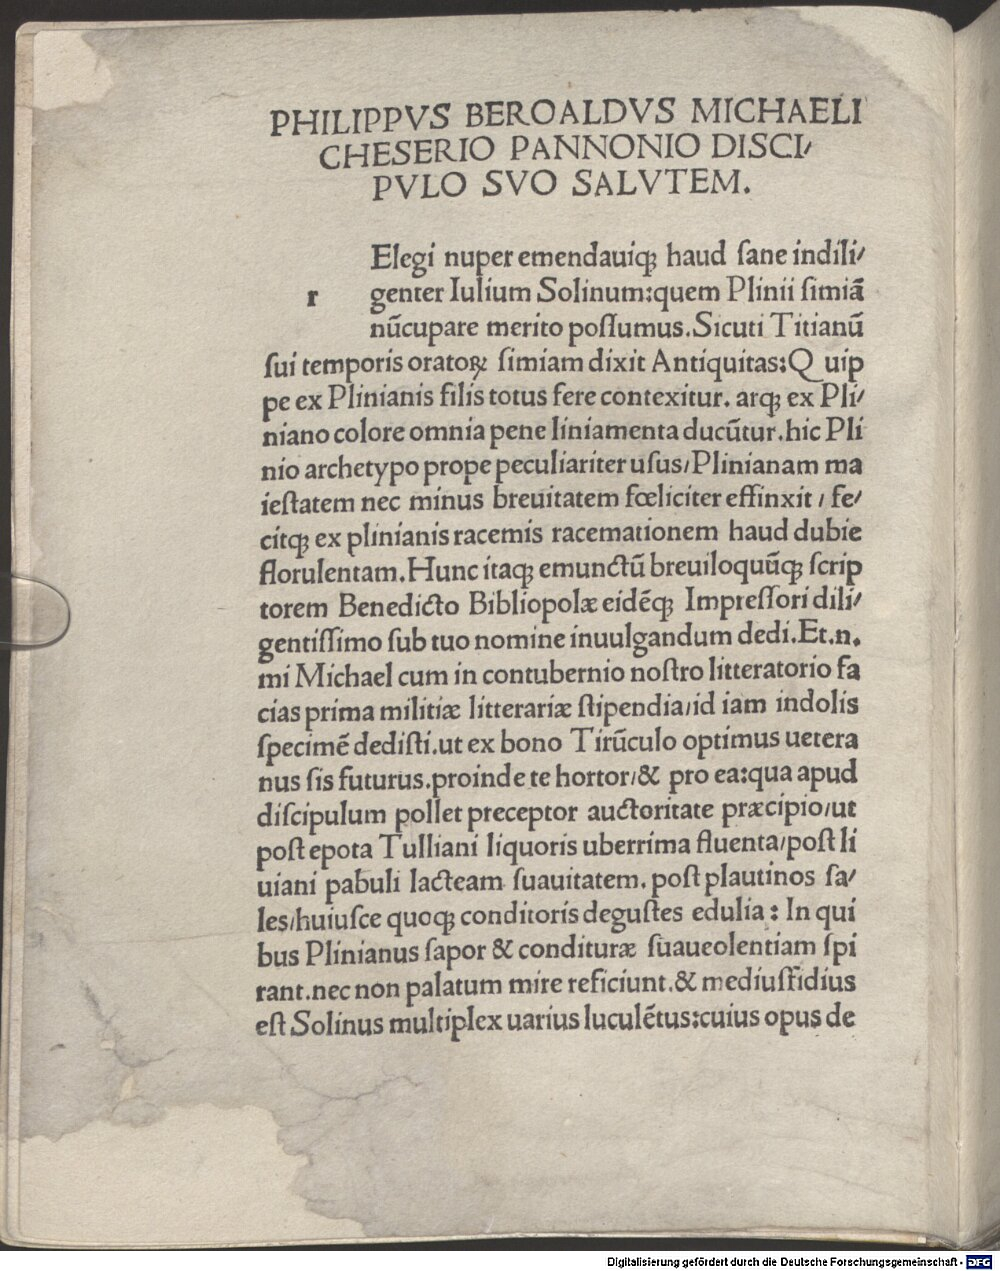 PHILIPPVS BEROALDVS MICHAELI
CHESERIO PANNONIO DISCI/
PVLO SVO SALVTEM.
Elegi nuper emendauiqꝫ haud ſane indili/
r genter Iulium Solinum:quem Plinii ſimiā
nūcupare merito poſſumus.Sicuti Titianū
ſui temporis oratoꝝ ſimiam dixit Antiquitas:Quip
pe ex Plinianis filis totus fere contexitur. atqꝫ ex Pli/
niano colore omnia pene liniamenta ducūtur.hic Pli
nio archetypo prope peculiariter uſus/Plinianam ma
ieſtatem nec minus breuitatem fœliciter effinxit / fe/
citqꝫ ex plinianis racemis racemationem haud dubie
florulentam.Hunc itaqꝫ emunctū breuiloquūqꝫ ſcrip
torem Benedicto Bibliopolæ eidēqꝫ Impreſſori dili/
gentiſſimo ſub tuo nomine inuulgandum dedi.Et.n.
mi Michael cum in contubernio noſtro litteratorio fa
cias prima militiæ litterariæ ſtipendia/id iam indolis
ſpecimē dediſti.ut ex bono Tirūculo optimus uetera
nus ſis futurus.proinde te hortor/& pro ea:qua apud
diſcipulum pollet preceptor auctoritate præcipio/ut
poſt epota Tulliani liquoris uberrima fluenta/poſt li
uiani pabuli lacteam ſuauitatem. poſt plautinos ſa/
les/huiuſce quoqꝫ conditoris deguſtes edulia: In qui
bus Plinianus ſapor & condituræ ſuaueolentiam ſpi
rant.nec non palatum mire reficiunt.& mediuſfidius
eſt Solinus multiplex uarius luculētus:cuius opus de
Digitalisierung gefördert durch die Deutsche Forschungsgemeinschaft - DFG